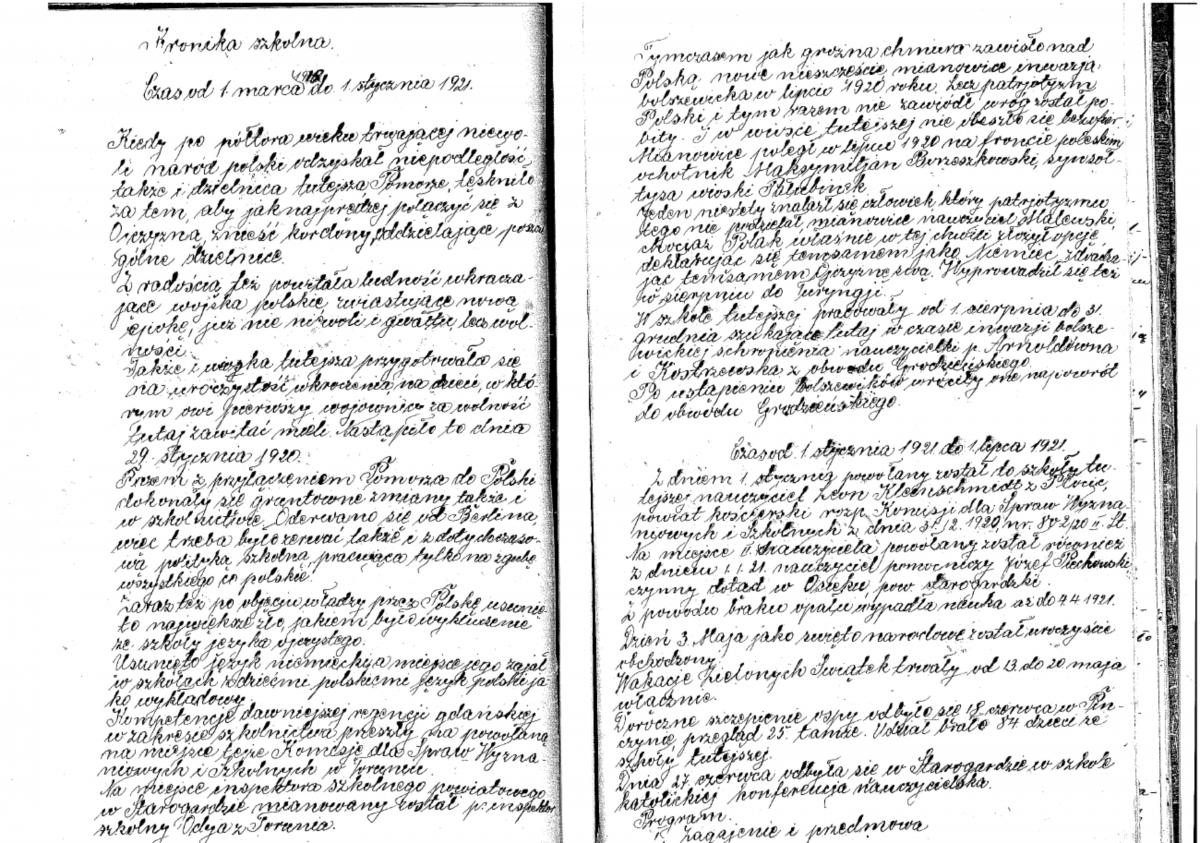 Kronika szkolna.
Czas od 1. marca 1918 do 1. stycznia 1921.
Kiedy po półtora wieku trwającej niewo-
li naród polski odzyskał niepodległość,
także i dzielnica tutejsza Pomorze tęskniło
za tem, aby jak najprędzej połączyć się z
Ojczyzną, znieść kordony, oddzielające poszcze
gólne dzielnice.
Z radością też powitała ludność wkracza-
jące wojska polskie zwiastujące nową
epokę, już nie niewoli i gwałtu, lecz wol-
ności.
Także i wioska tutejsza przygotowała się
na uroczystość wkroczenia, na dzień, w któ-
rym owi pierwszy wojownicy za wolność
tutaj zawitać mieli. Nastąpiło to dnia
29. stycznia 1920.
Przeem z przyłączeniem Pomorza do Polski
dokonały się gruntowne zmiany także i
w szkolnictwie. Oderwano się od Berlina,
więc trzeba było zerwać także i z dotychczaso-
wą polityką szkolną, pracującą tylko na zgubę
wszystkiego co polskie.
Zaraz też po objęciu władzy przez Polskę usunię-
to największe zło, jakiem było wykluczenie
ze szkoły języka ojczystego.
Usunięto język niemiecki, a miejsce jego zajął
w szkołach z dziećmi polskiemi język polski ja-
ko wykładowy.
Kompetencje dawniejszej regencji gdańskiej
w zakresie szkolnictwa przeszły na powołaną
na miejsce tejże Komisję dla Spraw Wyzna-
niowych i Szkolnych w Toruniu.
Na miejsce inspektora szkolnego powiatowego
w Starogardzie mianowany został p. inspektor
szkolny Odya z Torunia.
Tymczasem jak groźna chmura zawisło nad
Polską nowe nieszczęście, mianowice inwazja
bolszewicka w lipcu 1920 roku. Lecz patrjotyzm
Polski i tym razem nie zawiódł, wróg został po-
bity. I w wiosce tutejszej nie obeszło się bez ofiar
Mianowice poległ w lipcu 1920 na froncie poleskim
ochotnik Maksymiljan Borzeszkowski, syn soł-
tysa wioski Pałubinek.
Jeden niestety znalazł się człowiek który patrjotyzmu
tego nie podzielał, mianowice nauczyciel Malewski,
chociaż Polak właśnie w tej chwili złożył opcję
deklarując się temsamem jako Niemiec, zdradza-
jąc temsamem Ojczyznę swą. Wyprowadził się też
w sierpniu do Turyngji.
W szkole tutejszej pracowały od 1. sierpnia do 31.
grudnia szukające tutaj w czasie inwazji bolsze-
wickiej schronienia nauczycielki p. Arnoldówna
i Kostrzewska z obwodu Grodzieńskiego.
Po ustąpieniu Bolszewików wróciły one napowrót
do obwodu Grodzieńskiego.
Czas od 1. stycznia 1921 do 1. lipca 1921.
Z dniem 1. stycznia powołany został do szkoły tu-
tejszej nauczyciel Leon Kleinschmidt z Płocic,
powiat kościerski rozp. Komisji dla Spraw Wyzna-
niowych i Szkolnych z dnia 31.12.1920, nr. 8072/20 II. St.
Na miejsce II. nauczyciela powołany został również
z dniem 1.1.21. nauczyciel pomocniczy Józef Piechowski
czynny dotąd w Osieku, pow. starogardzki.
Z powodu braku opału wypadła nauka aż do 4.4.1921.
Dzień 3. Maja jako święto narodowe został uroczyście
obchodzony.
Wakacje Zielonych Świątek trwały od 13. do 20. maja
włącznie.
Doroczne szczepienie ospy odbyło się 18. czerwca w Pin-
czynie, przegląd 25. tamże. Udział brało 84 dzieci ze
szkoły tutejszej.
Dnia 27. czerwca odbyła się w Starogardzie w szkole
katolickiej konferencja nauczycielska.
Program.
1. Zagajenie i przedmowa